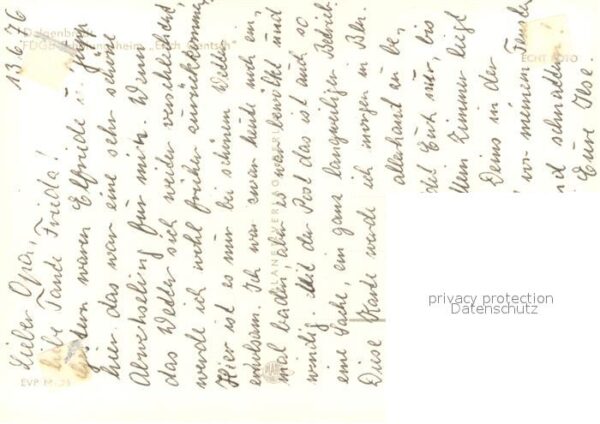 13.6.76
Lieber Opa,
liebe Tante Frieda!
Gestern waren Elfriede u. Jürgen
hier, das war eine sehr schöne
Abwechslung für mich. Wenn
das Wetter sich weiter verschlechtert,
werde ich wohl früher zurückkommen.
Hier ist es nur bei schönem Wetter
erholsam. Ich war zwar heute noch ein-
mal baden, aber es war bewölkt und
windig. Mit der Post das ist auch so
eine Sache, ein ganz langweiliger Betrieb.
Diese Karte werde ich morgen in Bln.
allerhand zu be,
det Euch nur, bis
Mein Zimmer liegt
Deins in der
vor meinem Fenster
und schnattern
Eure Ilse.
FDGB
ECHT FOTO
PLANET-VERLAG BERLIN
EVP M
privacy protection
Datenschutz